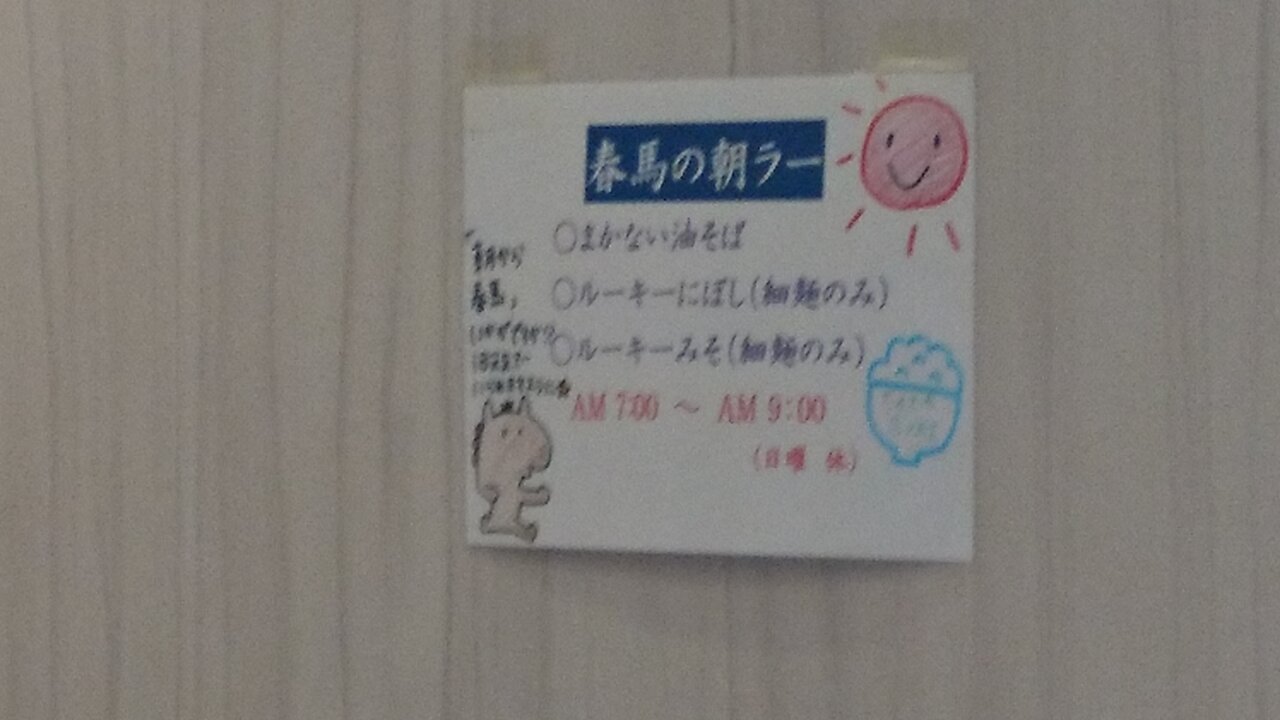 春馬の朝ラー
○まかない油そば
○ルーキーにぼし(細麺のみ)
○ルーキーみそ(細麺のみ)
AM 7:00 ～ AM 9:00
(日曜 休)
朝から
春馬、
いかがですか?